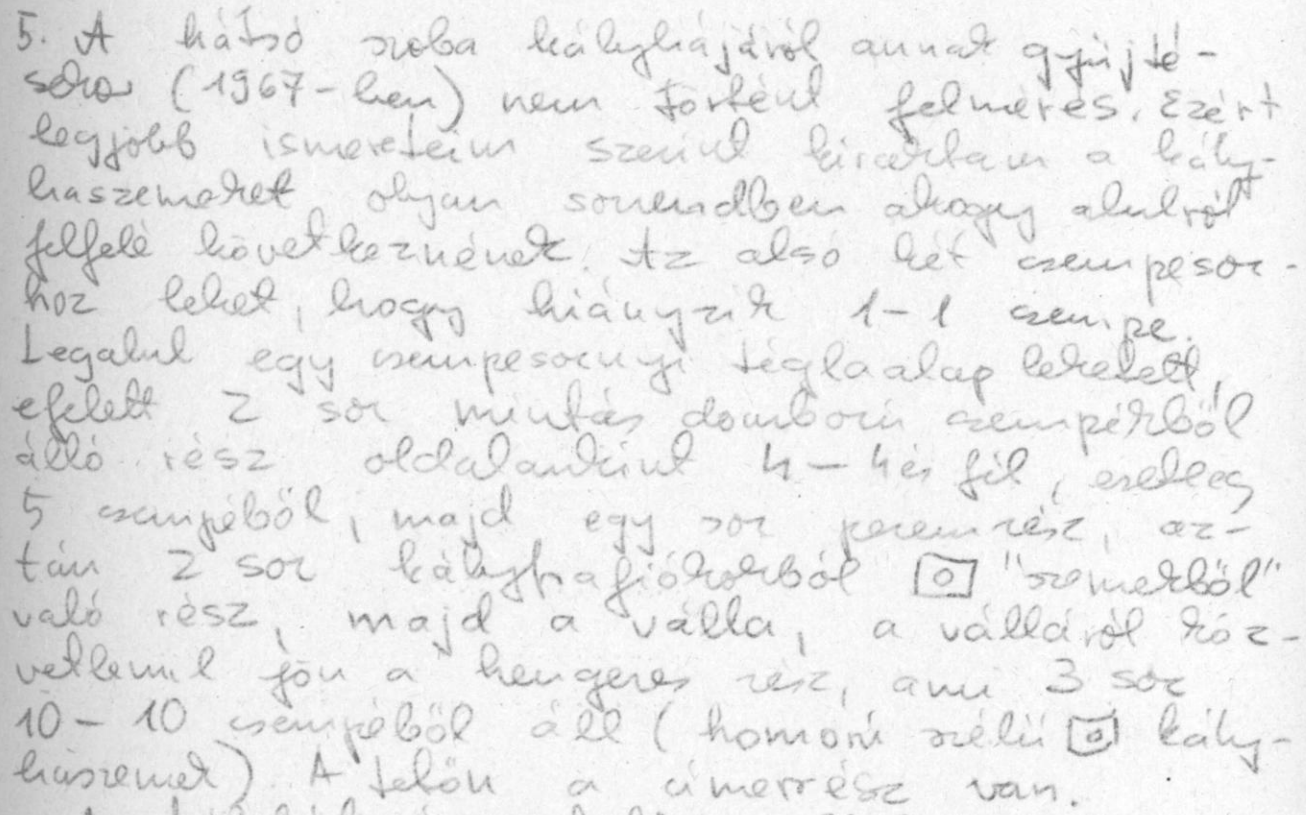 5. A hátsó szoba kályhájáról annak gyűjté-
sekor (1967-ben) nem történt felmérés. Ezért
legjobb ismereteim szerint kiraktam a kály-
haszemeket olyan sorrendben ahogy alulról
felfelé következnének. Az alsó két csempesor-
hoz lehet, hogy hiányzik 1-1 csempe.
Legalul egy csempesornyi téglaalap lehetett,
efelett 2 sor mintás domború csempékből
álló rész oldalanként 4-4 és fél, esetleg
5 csempéből, majd egy sor peremrész, az-
tán 2 sor kályhafiókokból "szemekből"
való rész, majd a válla, a válláról köz-
vetlenül jön a hengeres rész, ami 3 sor
10-10 csempéből áll (homorú szélű kály-
haszemek). A tetőn a címerrész van.